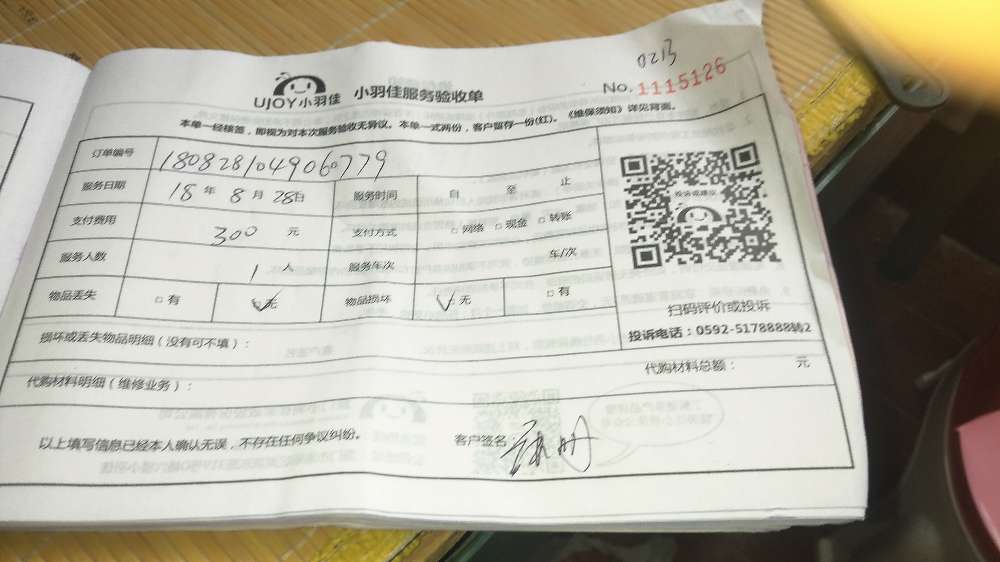 0213
UJOY小羽佳 小羽佳服务验收单 No. 1115126
本单一经核签，即视为对本次服务验收无异议。本单一式两份，客户留存一份(红)。《维保须知》详见背面。
订单编号 1808281049060779
服务日期 18 年 8 月 28日 服务时间 自 至 止
支付费用 300 元 支付方式 □网络 □现金 □转账
服务人数 1 人 服务车次 车/次
物品丢失 □有 ☑无 物品损坏 ☑无 □有
投诉或建议
扫码评价或投诉
投诉电话：0592-5178888转2
损坏或丢失物品明细（没有可不填）：
代购材料明细（维修业务）： 代购材料总额： 元
以上填写信息已经本人确认无误，不存在任何争议纠纷。 客户签名：